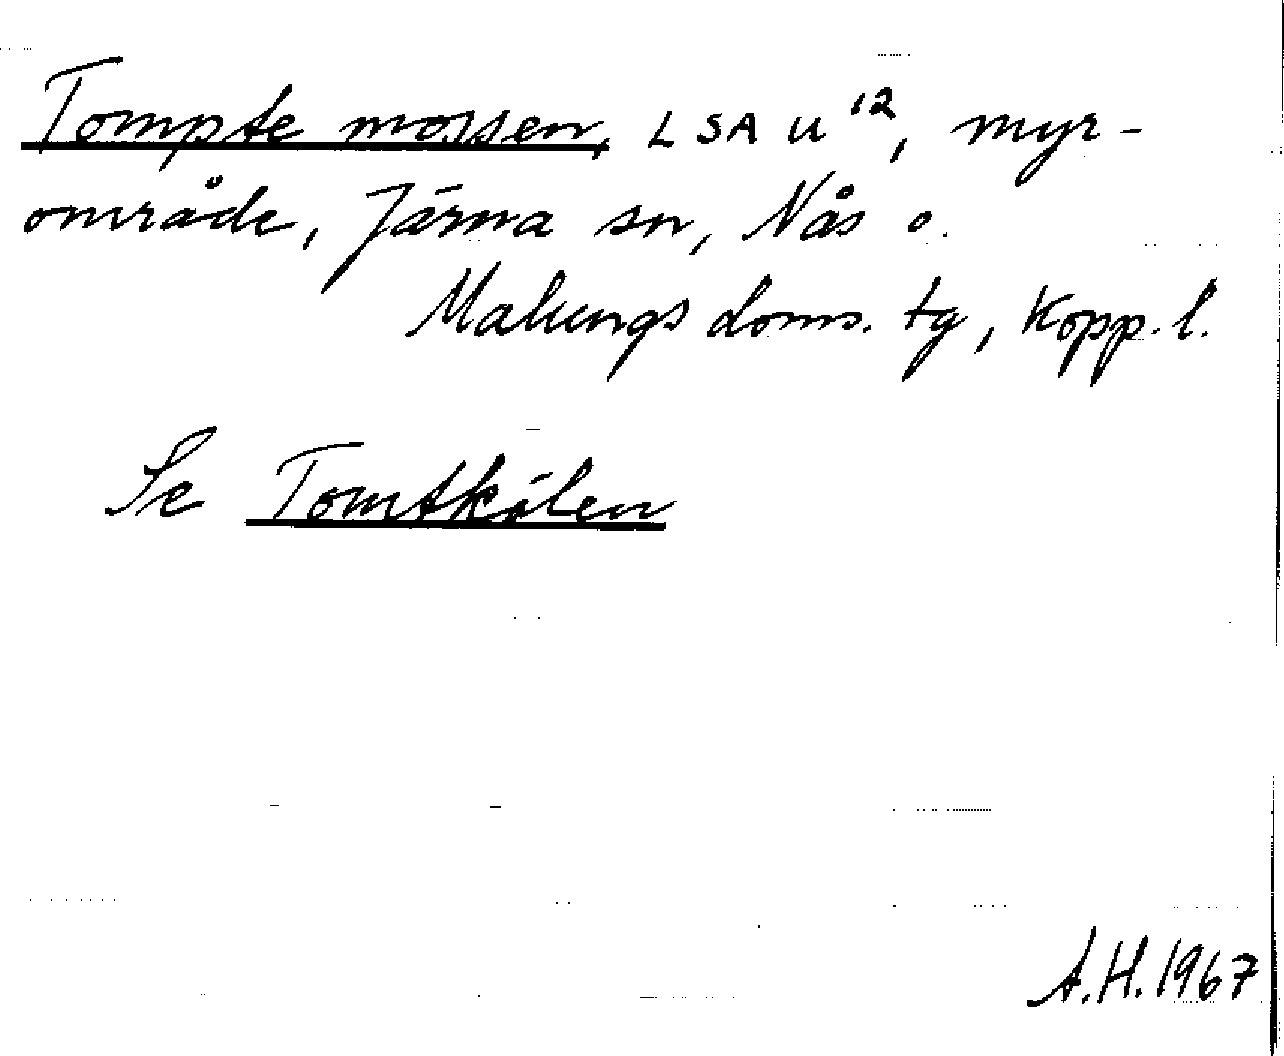 Tompte mossen, LSA U¹², myr-
område, Järna sn, Nås o.
Malungs doms. tg, Kopp. l.
Se Tomtkölen
A.H. 1967